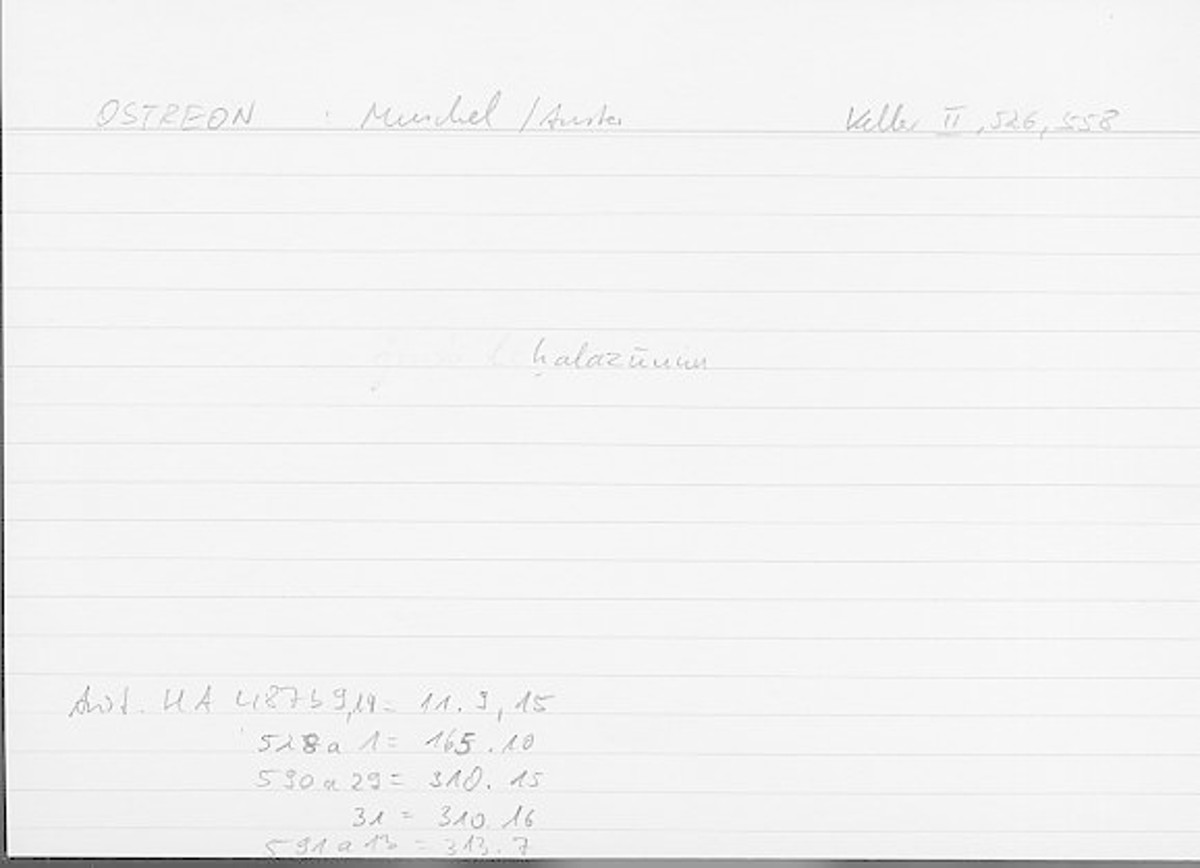 OSTREON : Muschel / Auster Keller II, 526, 558
ḥalazūnun
Arist. HA 487b 9,14 = 11.9, 15
528a 1 = 165.10
590a 29 = 310.15
31 = 310.16
591a 13 = 313.7